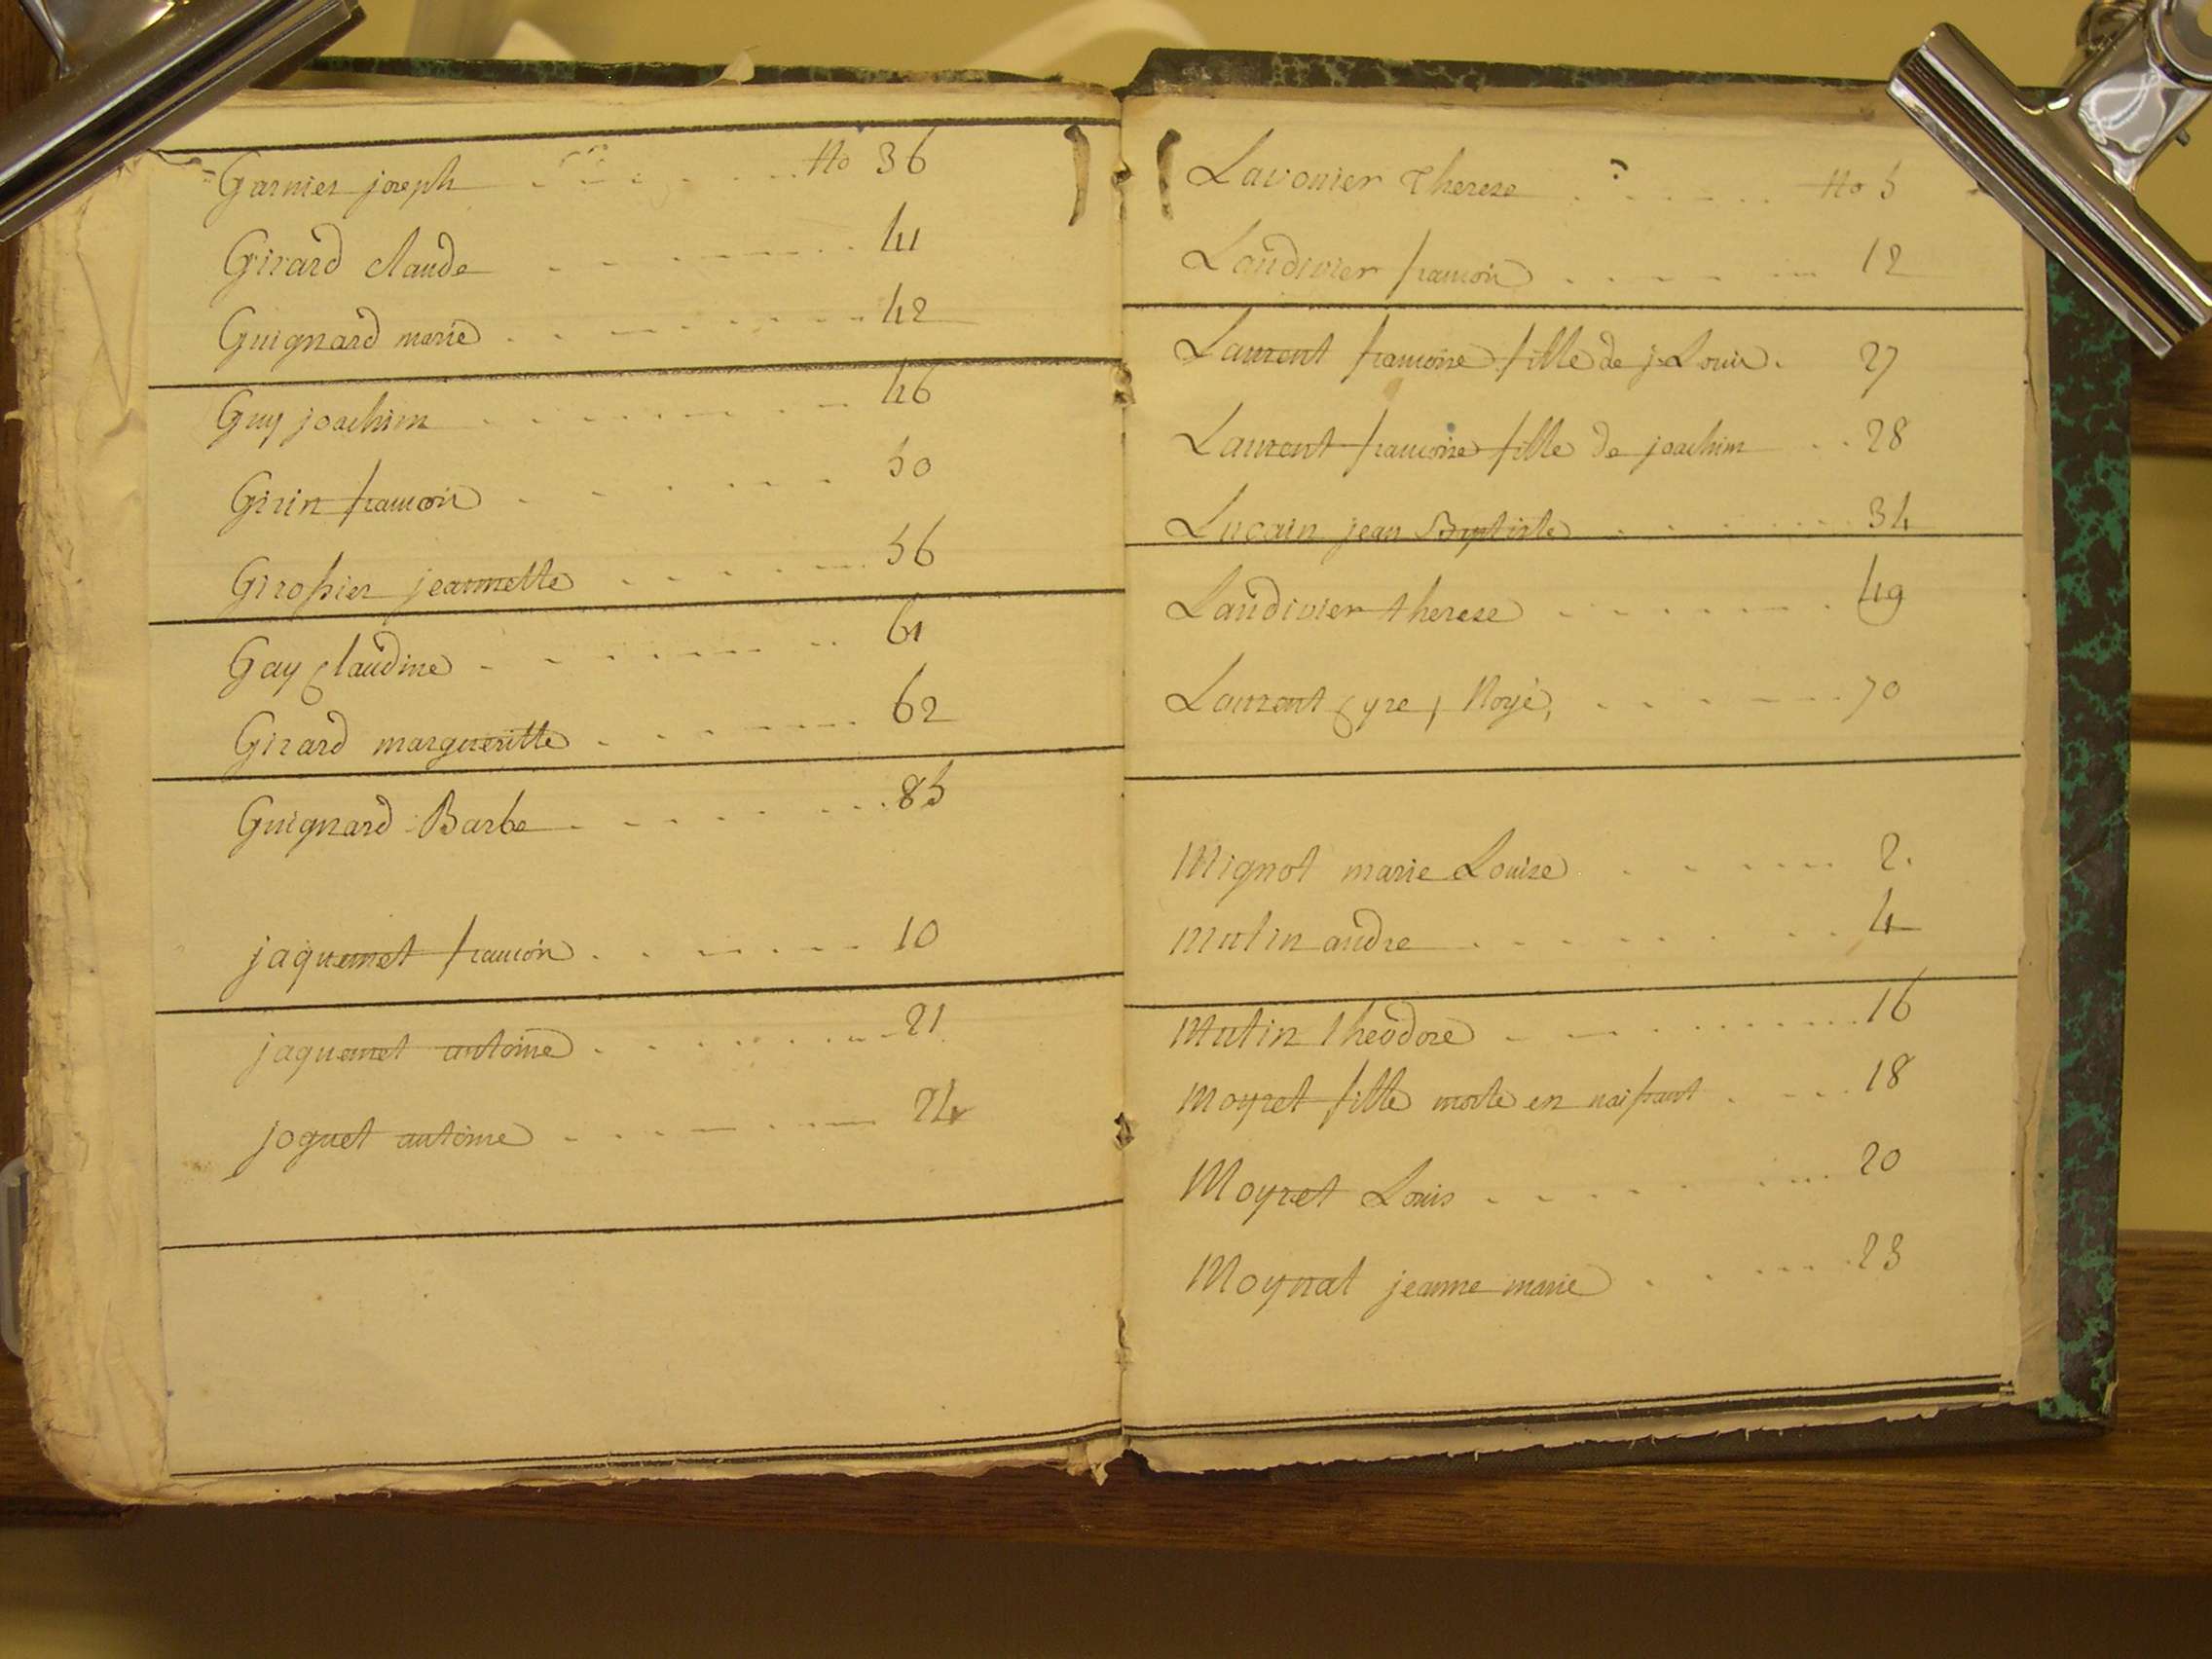 Garnier joseph No 36
Girard claude 41
Guignard marie 42
Guy joachim 46
Girin francois 50
Girossier jeannette 56
Gay claudine 61
Girard margueritte 62
Guignard Barbe 85
jaquemet francois 10
jaquemet antoine 21
joquet antoine 24
Lavonier Therese No 5
Laudivier francois 12
Laurent francoise fille de j. Louis. 27
Laurent francoise fille de joachim 28
Lucain jean Baptiste 34
Laudivier therese 49
Laurent Cyre, Noyé, 70
Mignot marie Louise 2.
mutin andre 4
Mutin theodore 16
moyret fille morte en naissant 18
Moyret Louis 20
Moynat jeanne marie 23